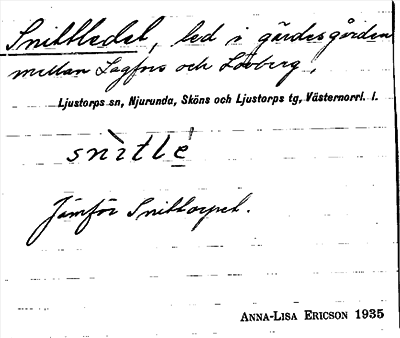 Snittledet, led i gärdesgården
mellan Lagfors och Lövberg.
Ljustorps sn, Njurunda, Sköns och Ljustorps tg, Västernorrl. l.
snìtlé
Jämför Snittorpet.
ANNA-LISA ERICSON 1935